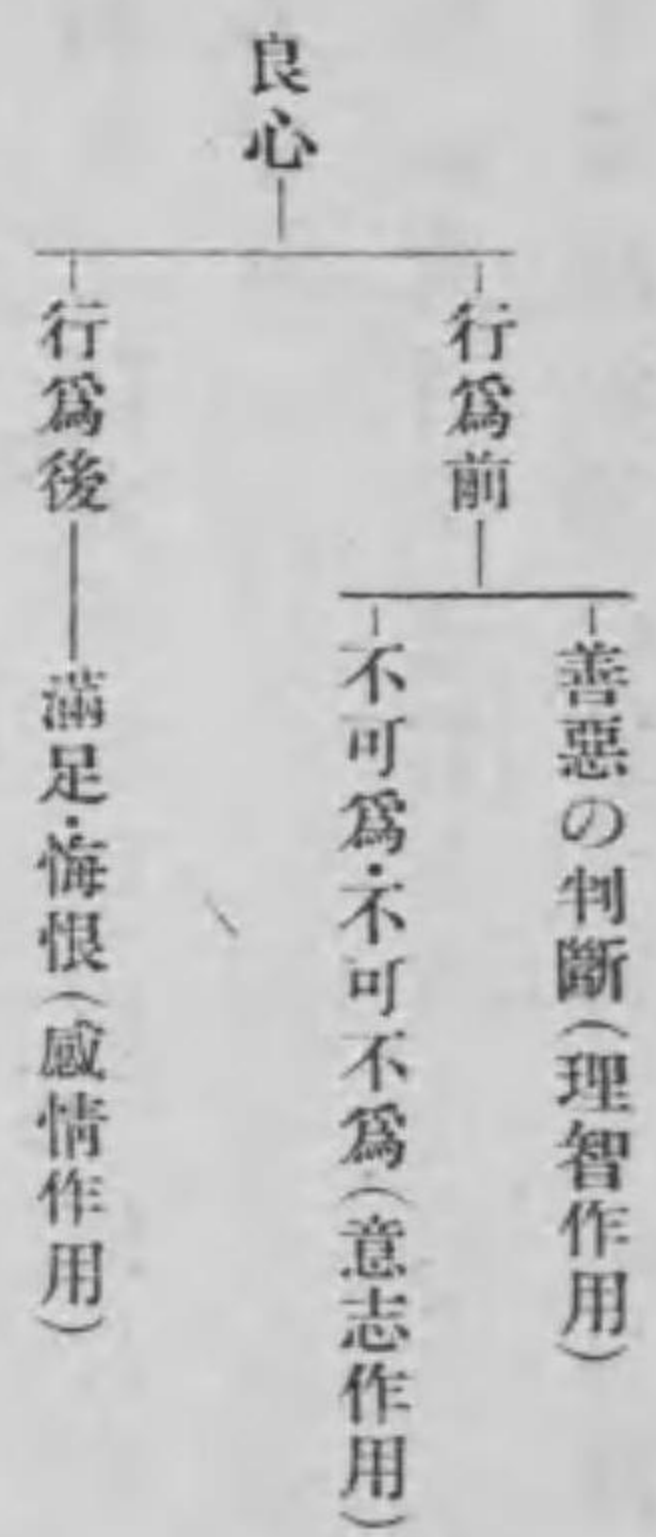 良心
行爲前
善惡の判斷（理智作用）
不可爲・不可不爲（意志作用）
行爲後
滿足・悔恨（感情作用）